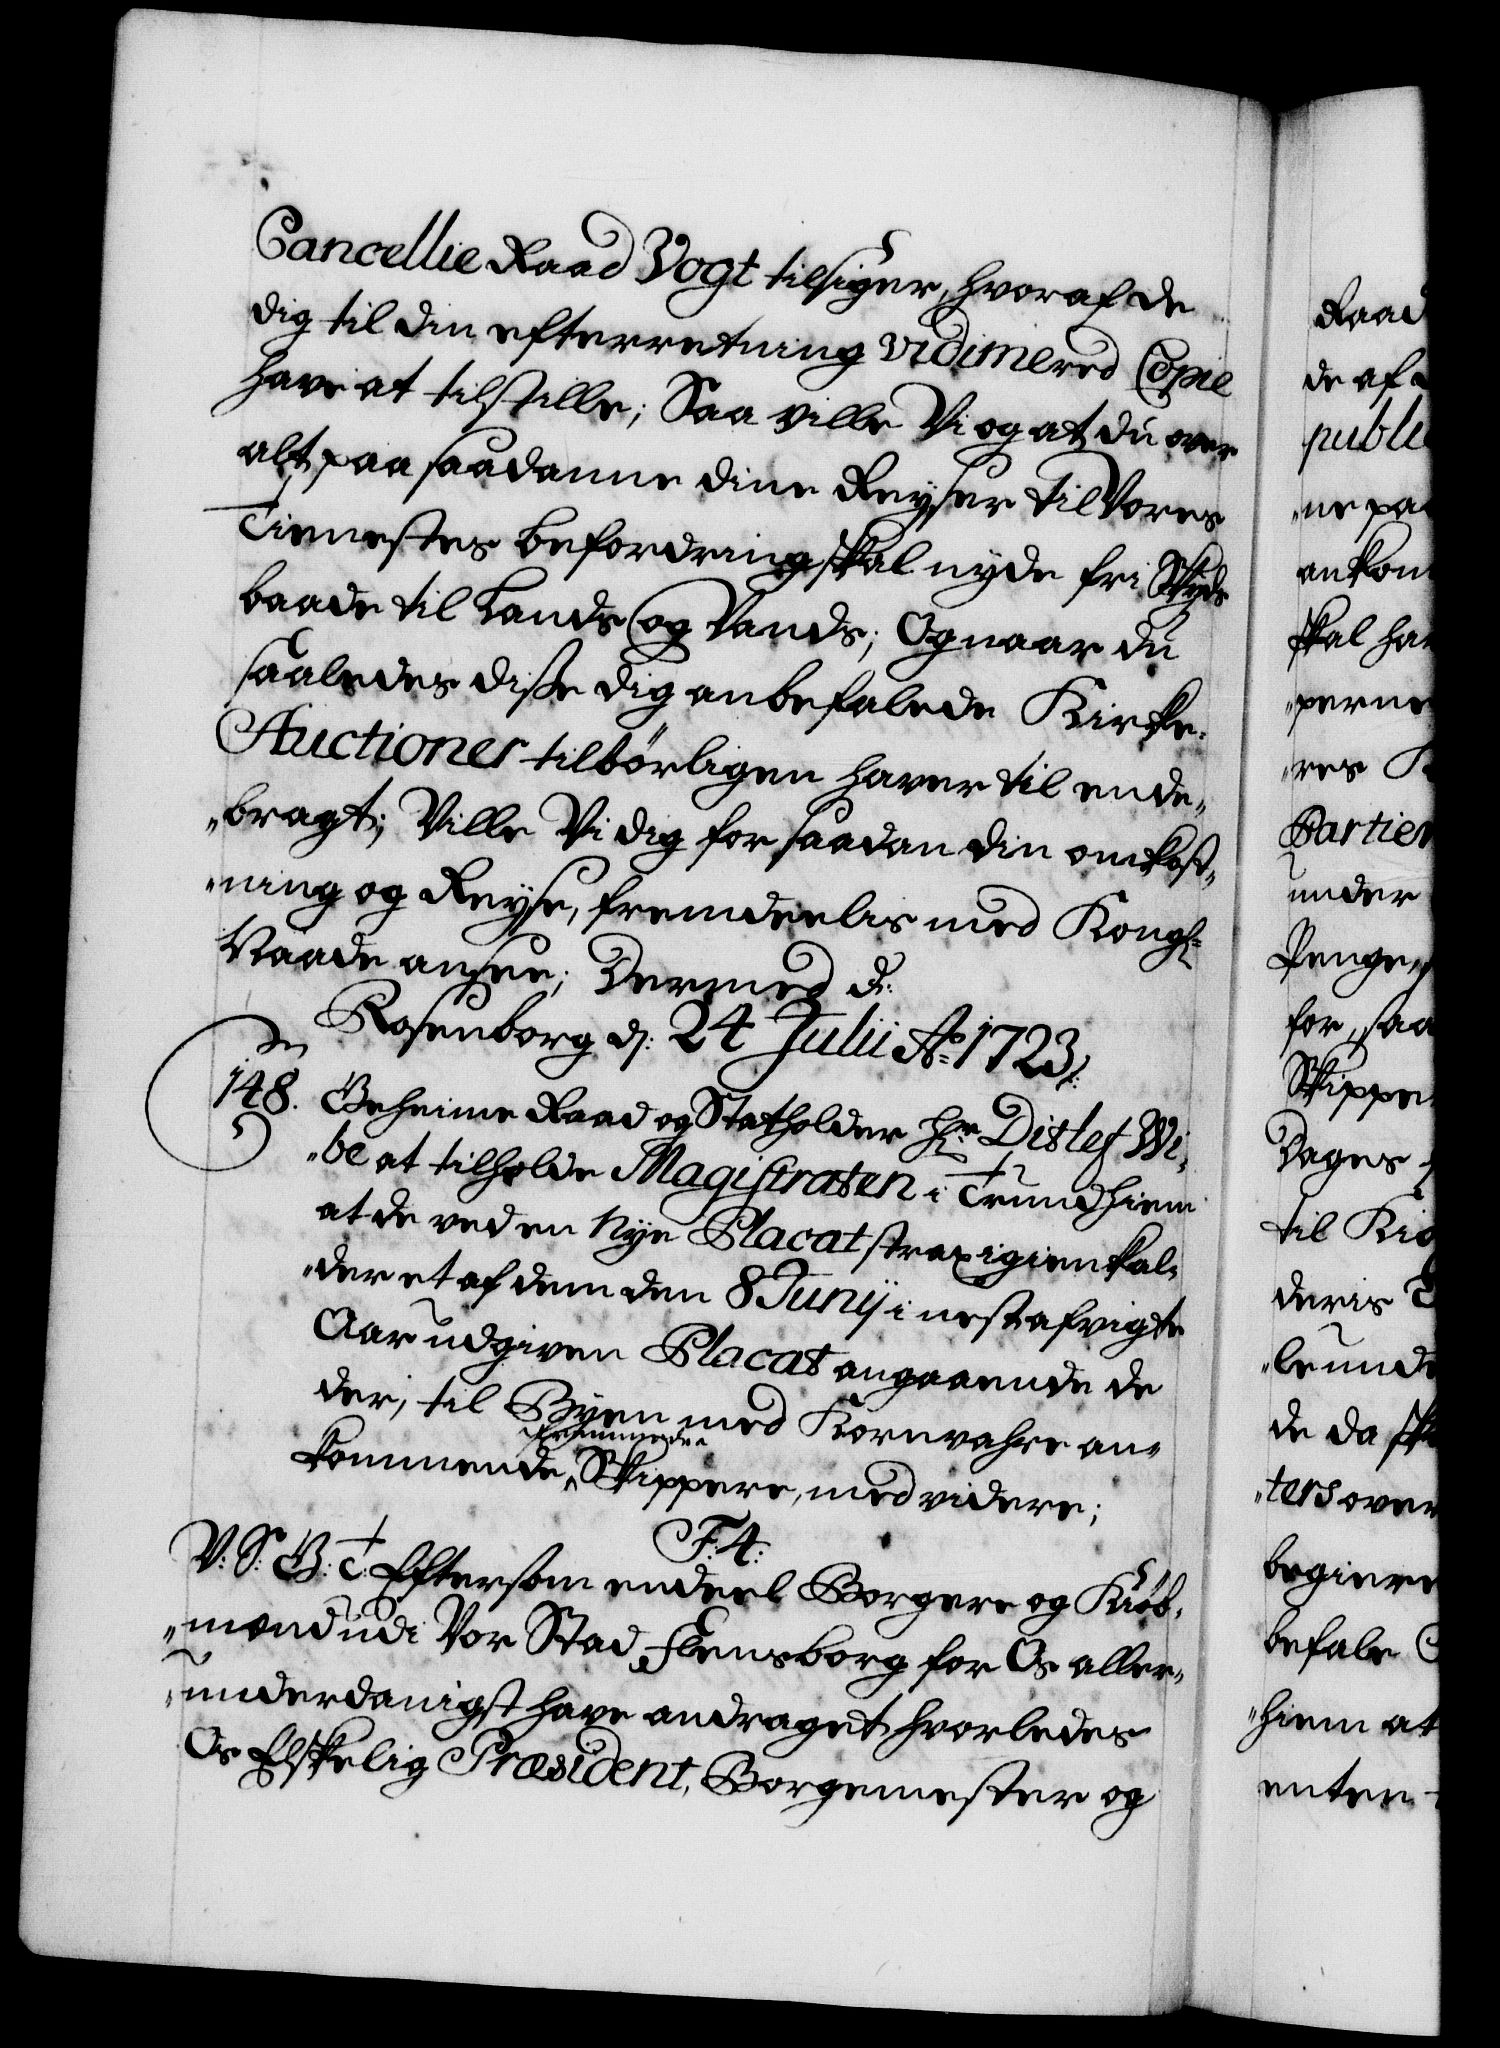 Cancellie Raad Vogt tilsiger, hvoraf de
dig til din efterretning vidimered Copie
have at tilstille; Saa ville Vi og at du over
alt paa saadanne dine Reyser til Vores
Tienestes befordring skal nyde fri Skyds
baade til Lands og Vands; Og naar du
saaledes disse dig anbefalede Kirke-
Auctioner tilbörligen haver til ende-
"bragt; Ville Vi dig for saadan din omkost-
"ning og Reyse, fremdeelis med Kongl:
Naade ansee; Dermed d:
Rosenborg d: 24 Julii Ao 1723.
148. Geheime Raad og Statholder Hr Ditlef Wi-
"be at tilholde Magistraten i Trundhiem
at de ved en Nye Placat strax igien kal-
"der et af dem den 8 Junij i nestafvigte
Aar udgiven Placat angaaende de
der, til Byen med Kornvahre an-
fremmede
kommende Skippere, med videre;
F: 4:
V: S: G: T: Eftersom endeel Borgere og Kiöb-
"mænd udi Vor Stad Flensborg for Os aller-
"underdanigst have andraget hvorledes
Os Elskelig Præsident, Borgemester og
Raad
de af
publi
"ne paa
ankom
skal ha
"perne
"res K
Partier
under
Penge
for, saa
Skippe
Dages
til Kiö
deris
"le unde
de da sk
"ters over
begiere
befale
"hiem at
enten